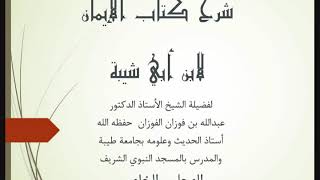 شرح كتاب الإيمان
لابن أبي شيبة
لفضيلة الشيخ الأستاذ الدكتور
عبدالله بن فوزان الفوزان حفظه الله
أستاذ الحديث وعلومه بجامعة طيبة
والمدرس بالمسجد النبوي الشريف